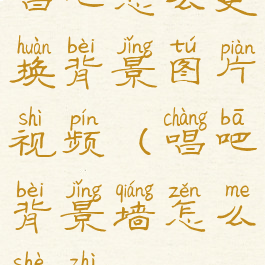 huàn bèi jǐng tú piàn
换背景图片
shì pín chàng bā
视频(唱吧
bèi jǐng qiáng zěn me
背景墙怎么
shè zhì